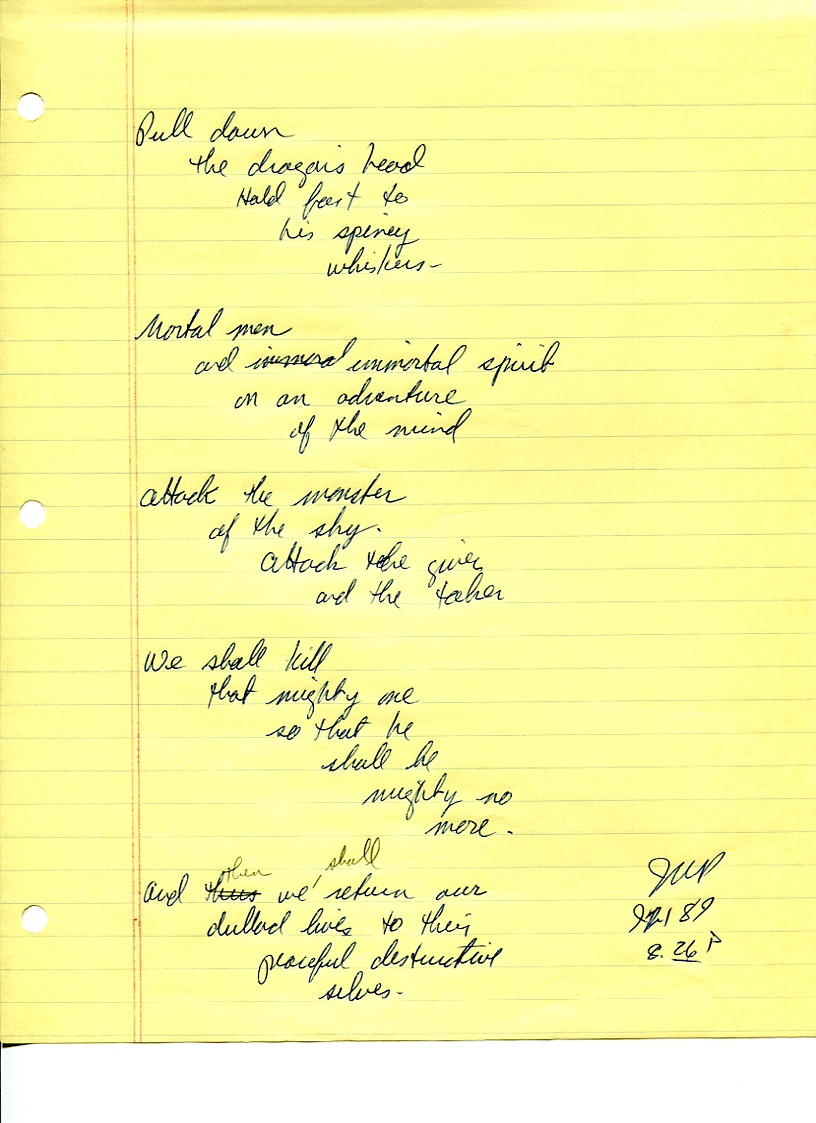 Pull down
the dragon's head
Hold fast to
his spiney
whiskers-
Mortal men
and immoral immortal spirit
on an adventure
of the mind
attack the monster
of the sky.
attack the giver
and the taker
We shall kill
that mighty one
so that he
shall be
mighty no
more.
then shall
And thus we return our
dullad lives to their
peaceful destructive
selves.
89
8.26 P